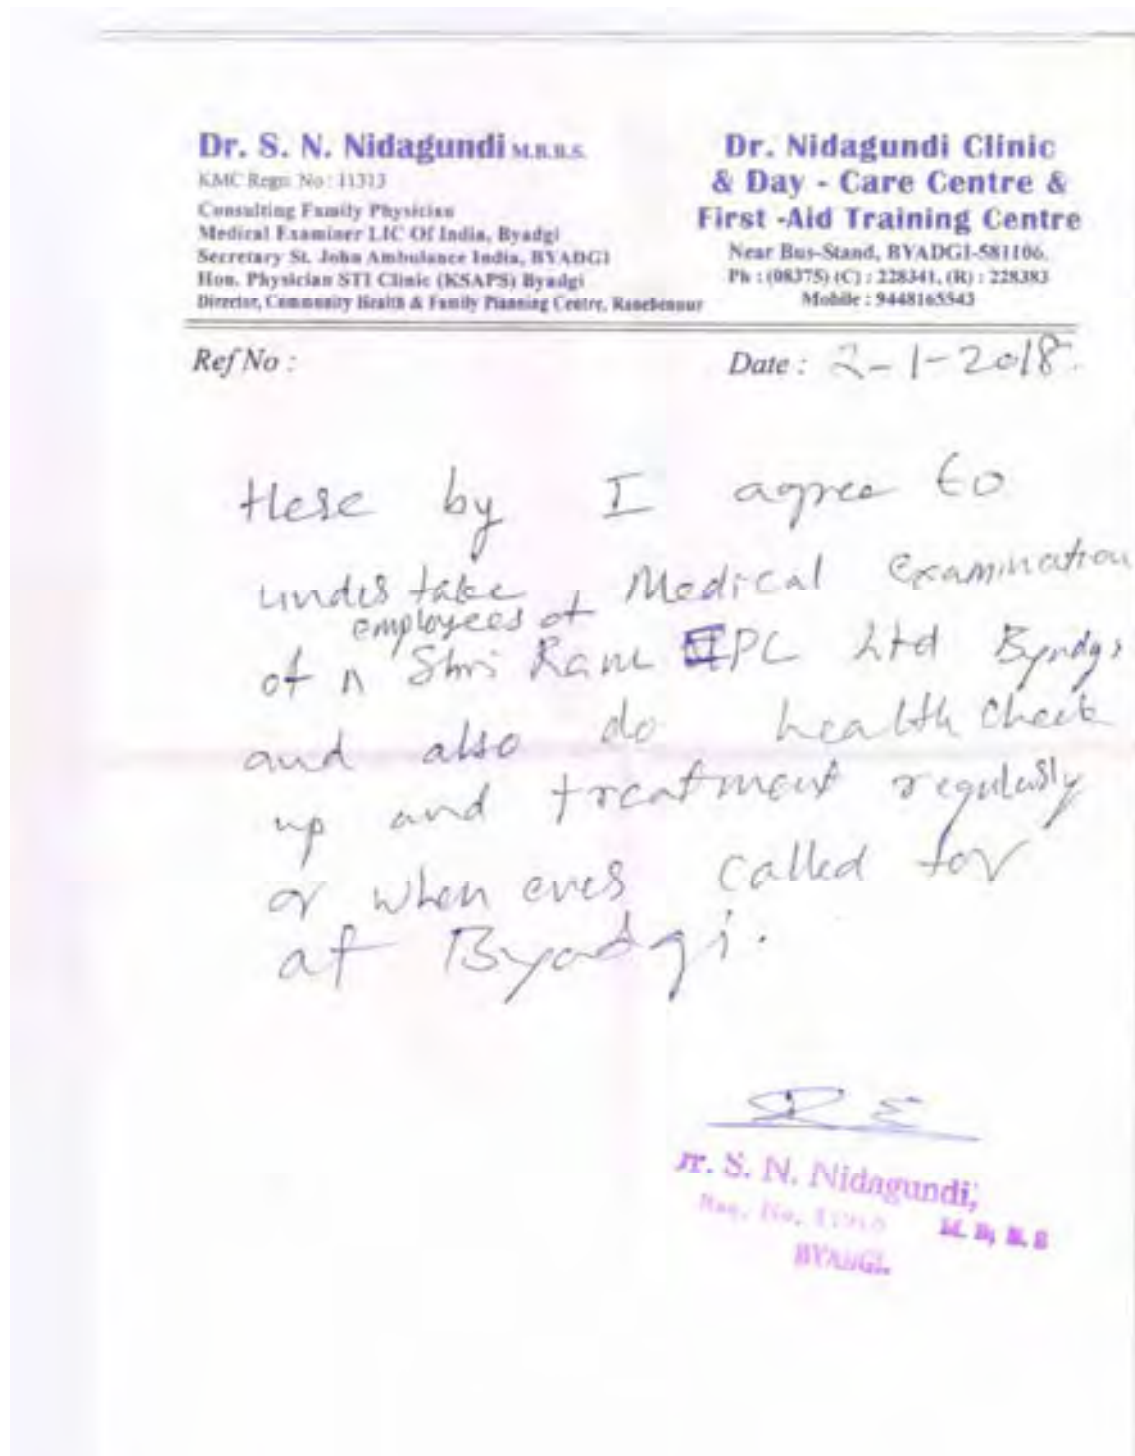 Dr. S. N. Nidagundi M.B.B.S.
KMC Regn. No : 11313
Consulting Family Physician
Medical Examiner LIC Of India, Byadgi
Secretary St. John Ambulance India, BYADGI
Hon. Physician STI Clinic (KSAPS) Byadgi
Director, Community Health & Family Planning Centre, Ranebennur
Dr. Nidagundi Clinic
& Day - Care Centre &
First -Aid Training Centre
Near Bus-Stand, BYADGI-581106.
Ph : (08375) (C) : 228341, (R) : 228383
Mobile : 9448165543
Ref No :
Date : 2-1-2018.
Here by I agree to
under take Medical examination
employees of
of Shri Ram EPC Ltd Byadgi
and also do health check
up and treatment regularly
or when ever called for
at Byadgi.
Dr. S. N. Nidagundi,
Reg. No. M. B, B. S
BYADGI.